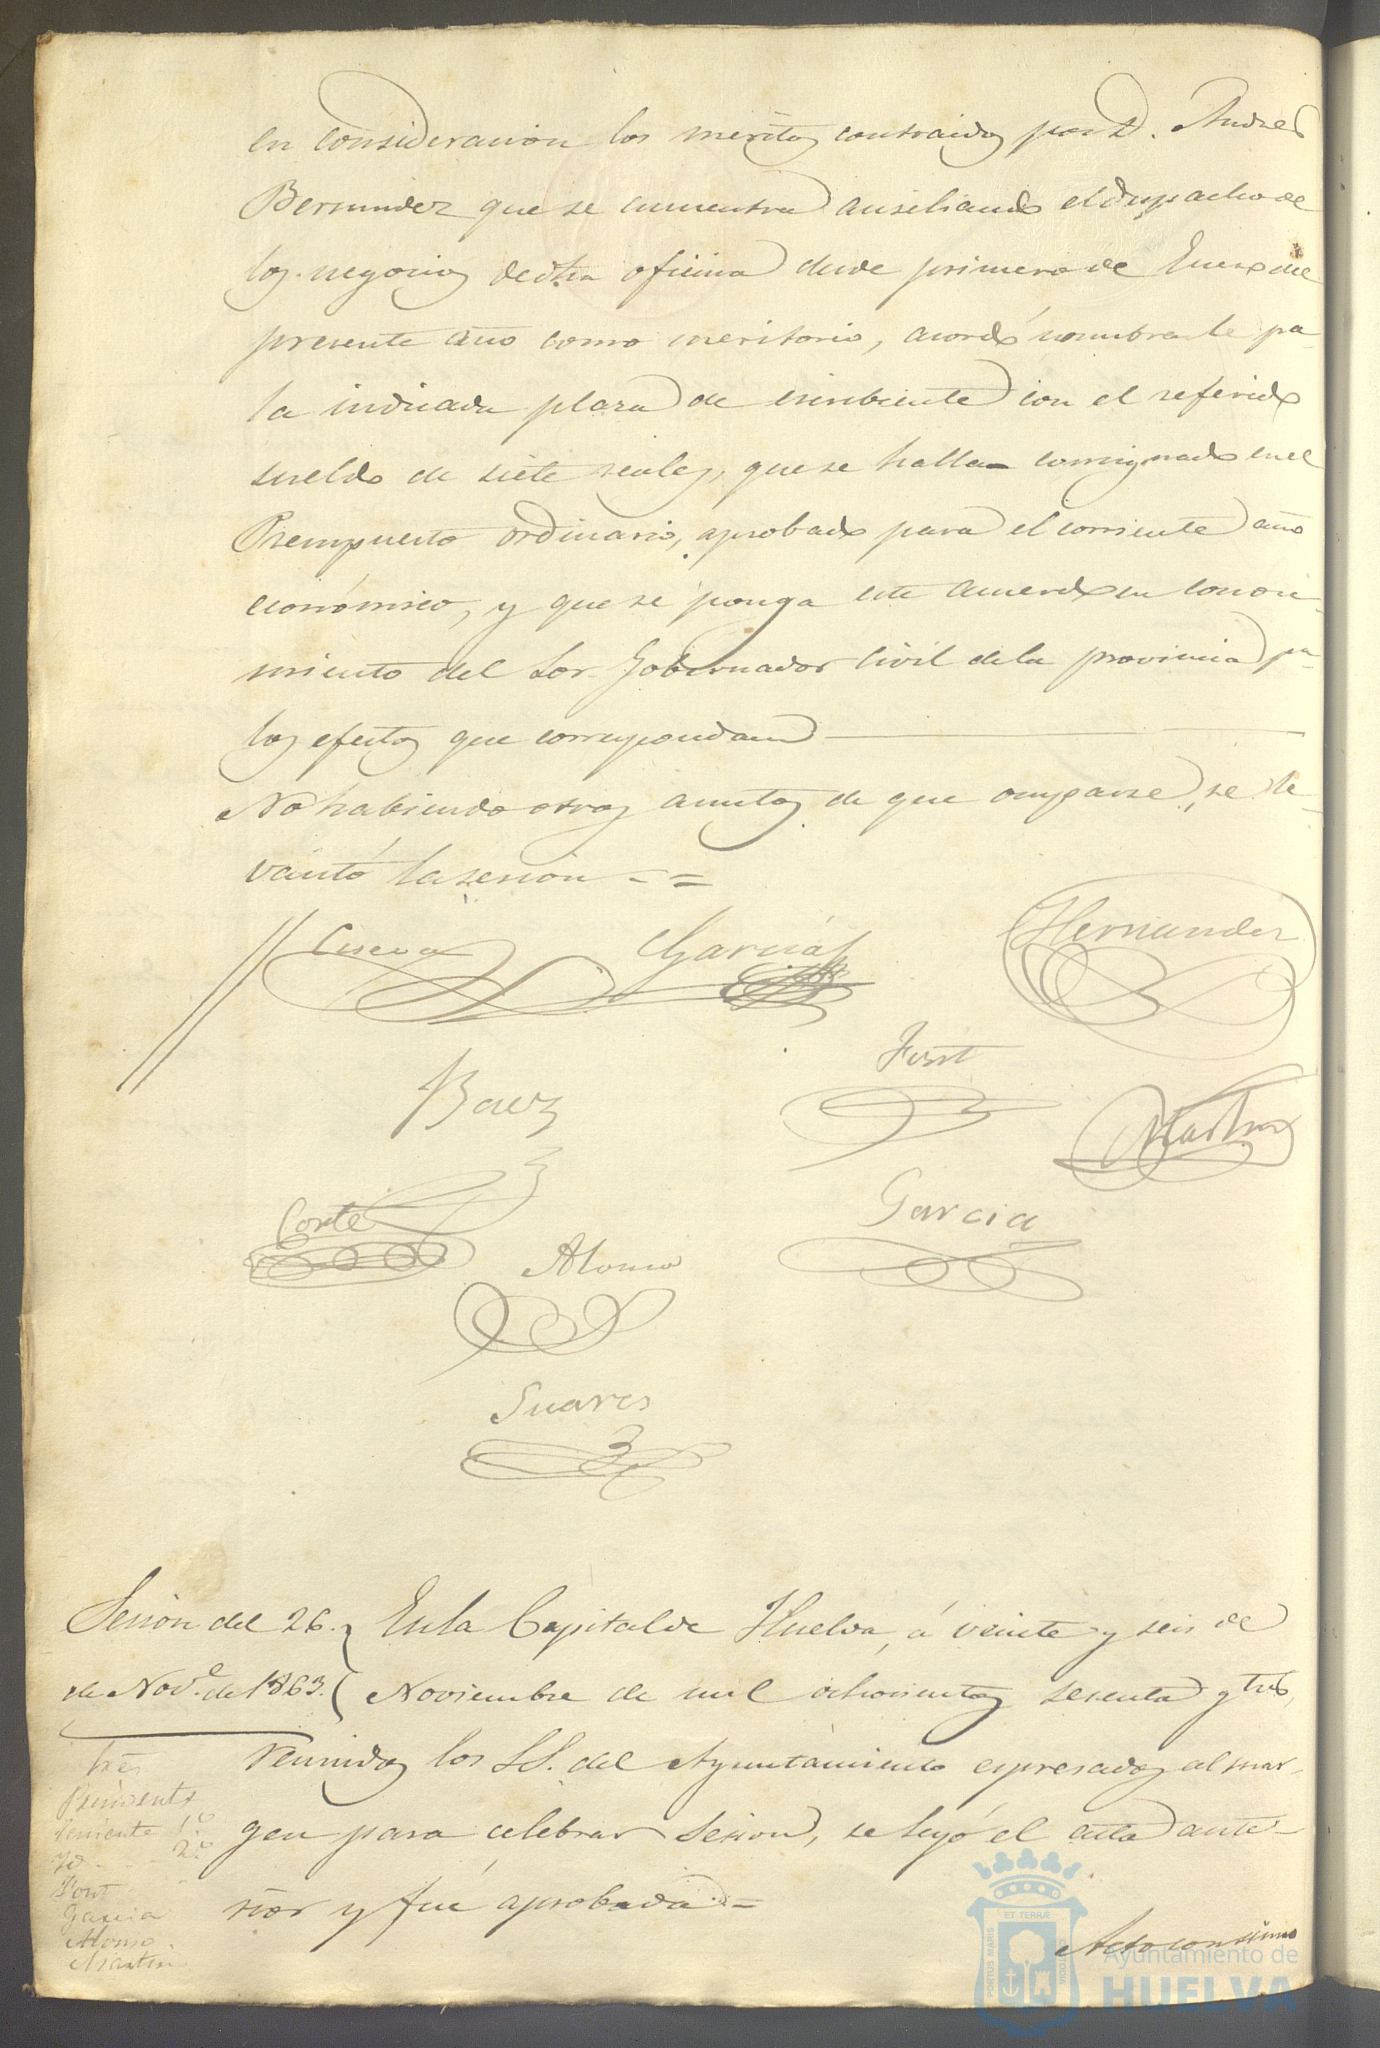 en consideracion los meritos contraidos por D. Andres
Bermudez que se encuentra ausiliando el despacho de
los negocios de dha oficina desde primero de Enero del
presente año como meritorio, acordó nombrarle pa-
la indicada plaza de escribiente con el referido
sueldo de siete reales, que se halla consignado en el
Presupuesto ordinario, aprobado para el corriente año
económico, y que se ponga este acuerdo en conoci-
miento del Sor. Gobernador Civil de la provincia pa-
los efectos que correspondan
No habiendo otros asuntos de que ocuparse, se le-
vantó la sesion - =
García Hernandez
Font
Baez
Martin
Corte
Garcia
Alonso
Suares
Sesion del 26.
de Nov.e de 1863.
En la Capital de Huelva, á veinte y seis de
Noviembre de mil ochocientos sesenta y tres,
reunidos los SS. del Ayuntamiento espresados al mar-
gen para celebrar Sesion, se leyó el acta ante-
rior y fué aprobada =
Acto continuo
Sres
Presidente
Teniente 1.o
Id - - - 2.o
Font
Garcia
Alonso.
Martin
PORTUS MARIS
ET TERRÆ
CUSTODIA
Ayuntamiento de
HUELVA